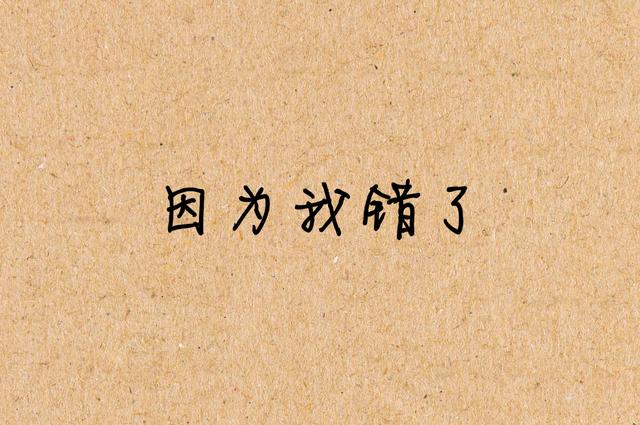 因为我错了